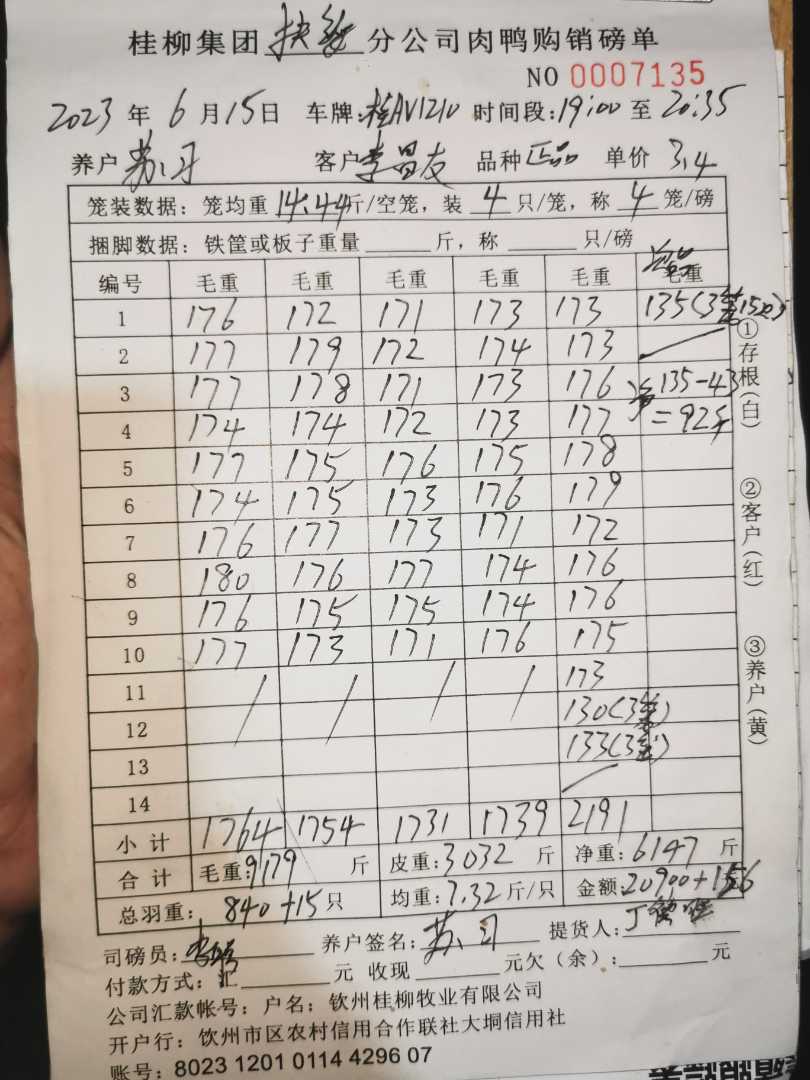 桂柳集团 扶绥 分公司肉鸭购销磅单
NO 0007135
2023 年 6 月 15 日 车牌:桂AV1210 时间段:19:00 至 20:35
养户 苏习 客户 李昌友 品种 正品 单价 3.4
笼装数据: 笼均重 14.44 斤/空笼, 装 4 只/笼, 称 4 笼/磅
捆脚数据: 铁筐或板子重量 斤, 称 只/磅
编号 毛重 毛重 毛重 毛重 毛重 毛重
1 176 172 171 173 173 135(3笼15只)
2 177 179 172 174 173
3 177 178 171 173 176 135-43
4 174 174 172 173 177 =92斤
5 177 175 176 175 178
6 174 175 173 176 179
7 176 177 173 171 172
8 180 176 177 174 176
9 176 175 175 174 176
10 177 173 171 176 175
11 / / / / 173
12 130(3笼)
13 133(3笼)
14
小计 1764 1754 1731 1739 2191
合计 毛重:9179 斤 皮重:3032 斤 净重:6147 斤
总羽重: 840+15 只 均重:7.32 斤/只 金额:20900+156
司磅员: 养户签名: 苏习 提货人:
付款方式: 汇 元 收现 元欠(余): 元
公司汇款帐号: 户名: 钦州桂柳牧业有限公司
开户行: 钦州市区农村信用合作联社大垌信用社
账号: 8023 1201 0114 4296 07
①存根(白)
②客户(红)
③养户(黄)